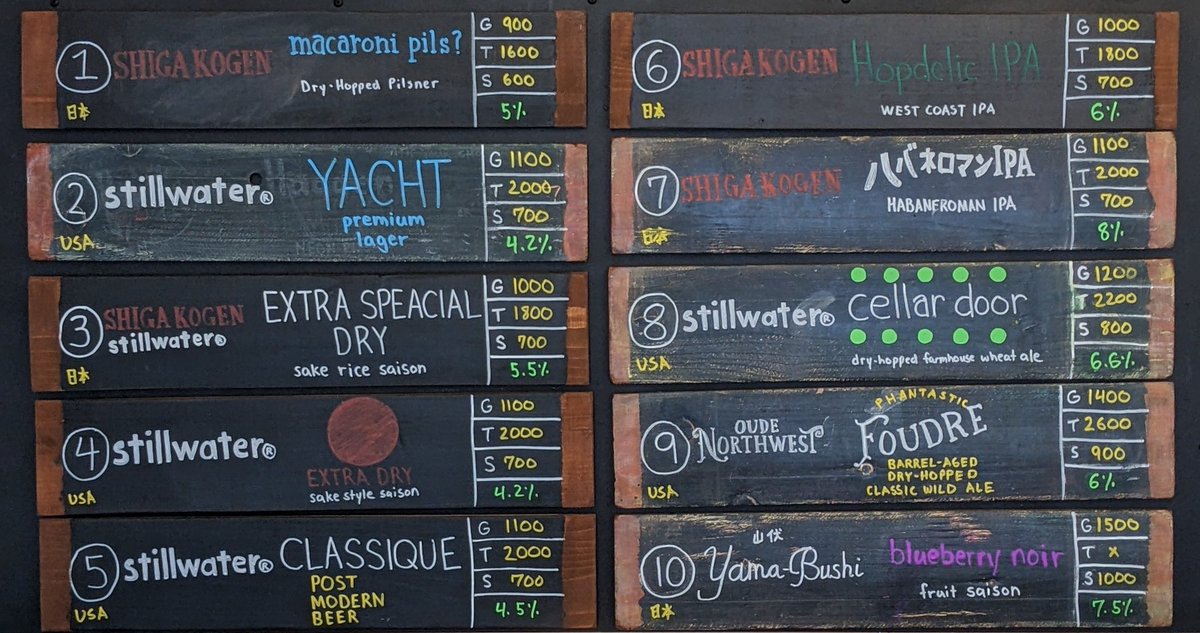 1 SHIGA KOGEN macaroni pils?
Dry-Hopped Pilsner
日本
G 900
T 1600
S 600
5%
2 stillwater® YACHT
premium
lager
USA
G 1100
T 2000
S 700
4.2%
3 SHIGA KOGEN
stillwater®
EXTRA SPEACIAL
DRY
sake rice saison
日本
G 1000
T 1800
S 700
5.5%
4 stillwater®
EXTRA DRY
sake style saison
USA
G 1100
T 2000
S 700
4.2%
5 stillwater® CLASSIQUE
POST
MODERN
BEER
USA
G 1100
T 2000
S 700
4.5%
6 SHIGA KOGEN Hopdelic IPA
WEST COAST IPA
日本
G 1000
T 1800
S 700
6%
7 SHIGA KOGEN ハバネロマンIPA
HABANEROMAN IPA
日本
G 1100
T 2000
S 700
8%
8 stillwater® cellar door
dry-hopped farmhouse wheat ale
USA
G 1200
T 2200
S 800
6.6%
9 OUDE
NORTHWEST
PHANTASTIC
FOUDRE
BARREL-AGED
DRY-HOPPED
CLASSIC WILD ALE
USA
G 1400
T 2600
S 900
6%
10 山伏
Yama-Bushi
blueberry noir
fruit saison
日本
G 1500
T x
S 1000
7.5%